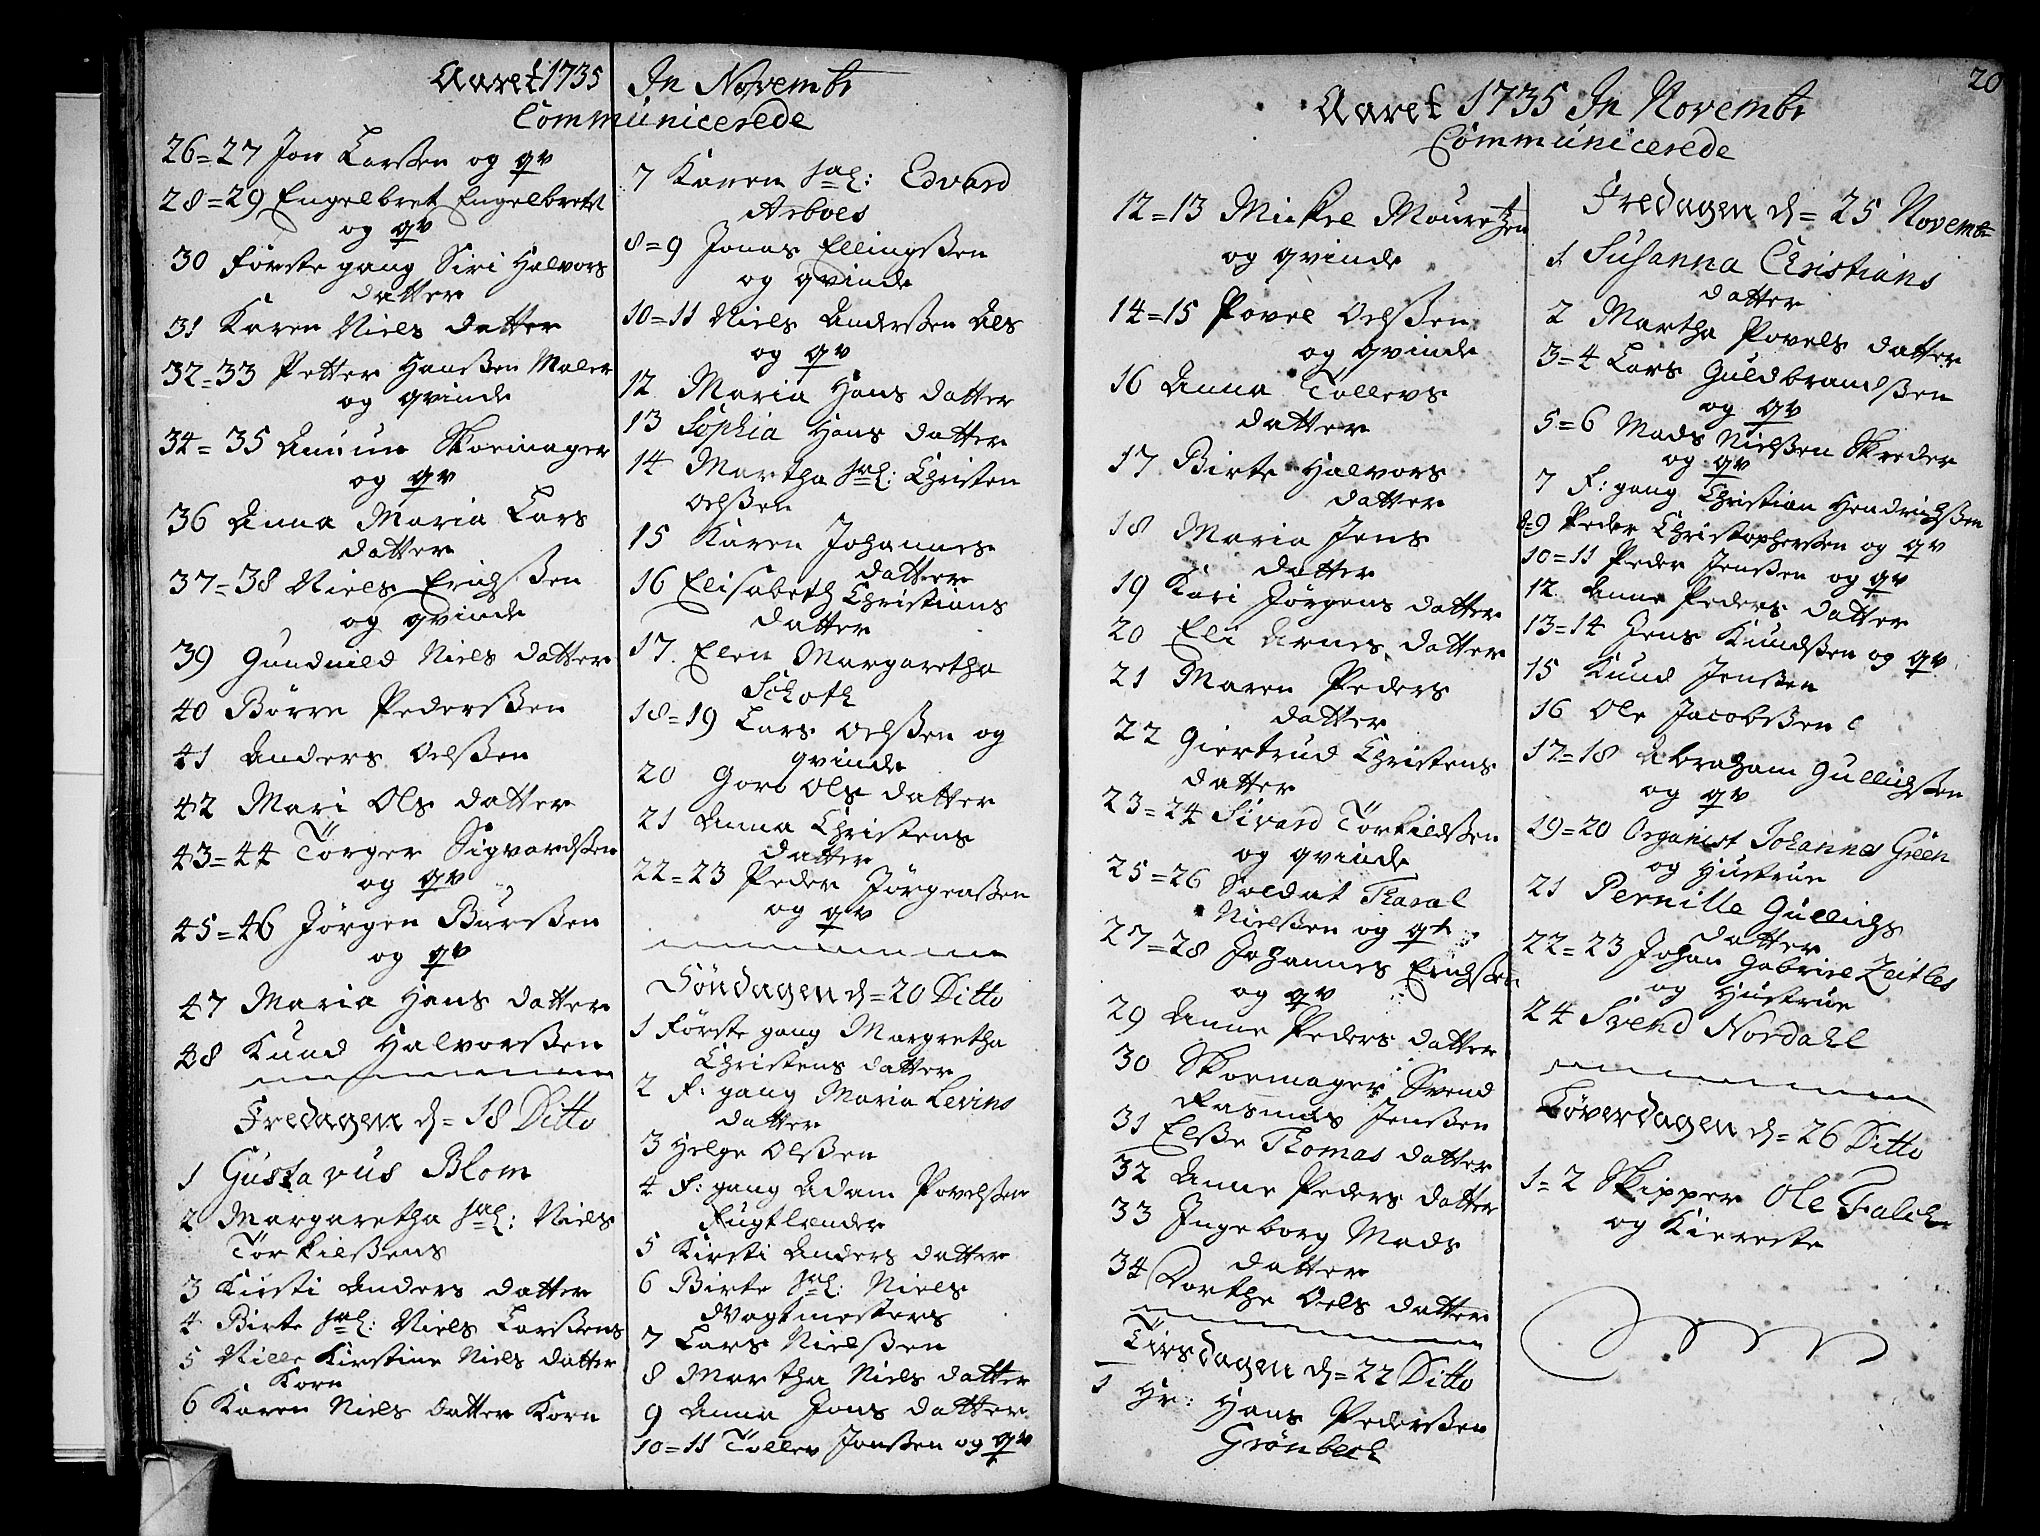 Aaret 1735 In Novembr
Communicerede
26=27 Jon Larsßen og qv
28=29 Engelbret Engelbretst
og qv
30 første gang Siri Halvors
datter
31 Karen Niels datter
32=33 Petter Hanßen Maler
og qvinde
34=35 Amun Skoemager
og qv
36 Anna Maria Lars
datter
37=38 Niels Erichßen
og qvinde
39 Gundnild Niels datter
40 Børre Pederßen
41 Anders Oelßen
42 Mari Ols datter
43=44 Törger Sigvardßen
og qv
45=46 Jörgen Burßen
og qv
47 Maria Hans datter
48 Knud Halvorßen
Fredagen d=18 Ditto
1 Gustavus Blom
2 Margaretha sal: Niels
Törkilßens
3 Kirsti Anders datter
4 Birte sal: Niels Larßens
5 Nille Kirstine Niels datter
Korn
6 Karen Niels datter Korn
7 Karen sal: Edvard
Arboes
8=9 Jonas Ellingßen
og qvinde
10=11 Niels Anderßen Als
og qv
12 Maria Hans datter
13 Sophia Hans datter
14 Martha sal: Christen
Oelßen
15 Karen Johannes
datter
16 Elisabeth Christians
datter
17. Elen Margaretha
Schoth
18=19 Lars Oelßen og
qvinde
20 Goro Ols datter
21 Anna Christens
datter
22=23 Peder Jörgenßen
og qv
Söndagen d=20 Ditto
1 Förste gang Margretha
Christens datter
2 F: gang Maria Levins
datter
3 Helge Olßen
4 F: gang Adam Povelßen
Fugtlænder
5 Kirsti Anders datter
6 Birte sal: Niels
Wagtmesters
7 Lars Nielßen
8 Martha Niels datter
9 Anna Jons datter
10=11 Tollev Jonßen og qv
20
Aaret 1735 In Novembr
Communicerede
12=13 Mickel Mouretzen
og qvinde
14=15 Povel Oelßen
og qvinde
16 Anna Tollevs
datter
17 Birte Halvors
datter
18 Maria Jens
datter
19 Kari Jörgens datter
20 Eli Arnes datter
21 Maren Peders
datter
22 Giertrud Christens
datter
23=24 Sivard Törkildßen
og qvinde
25=26 Soldat Tharal
Nielßen og qv
27=28 Johannes Erichßen
og qv
29 Anne Peders datter
30 Skoemager Svend
Rasmus Jenßen
31 Elße Thomas datter
32 Anne Peders datter
33 Ingeborg Mads
datter
34 Dorthe Oels datter
Tirsdagen d=22 Ditto
1 Hr: Hans Pederßen
Grönbech
Fredagen d=25 Novembr
1 Susanna Christians
datter
2 Martha Povels datter
3=4 Lars Guldbrandßen
og qv
5=6 Mads Nielßen Skreder
og qv
7 F: gang Christian Hendrichßen
8=9 Peder Christopherßen og qv
10=11 Peder Jenßen og qv
12. Anne Peders datter
13=14 Jens Knudßen og qv
15 Knud Jenßen
16 Ole Jacobßen
17=18 Abraham Gullichßen
og qv
19=20 Organist Johannes Green
og Hustrue
21 Pernille Gullichs
datter
22=23 Johan Gabriel Zeitles
og Hustrue
24 Svend Nordahl
Löverdagen d=26 Ditto
1=2 Skipper Ole Falch
og Kiereste